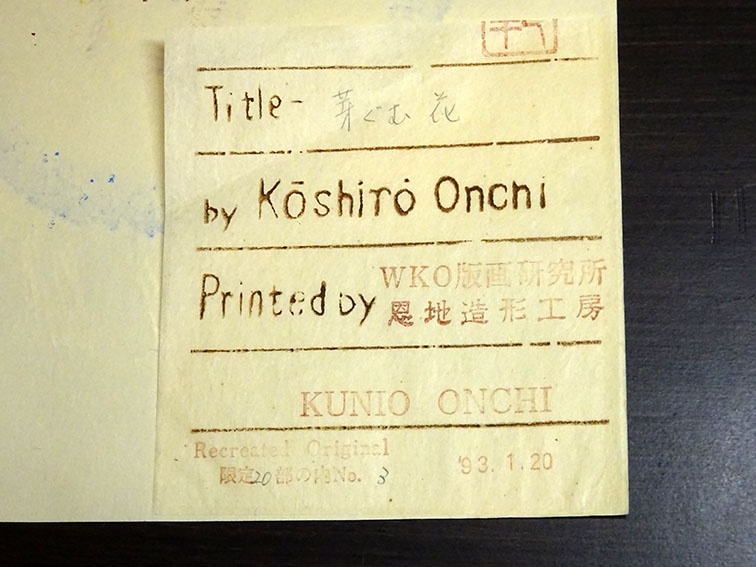 Title - 芽ぐむ 花
by Kōshirō Onchi
Printed by WKO版画研究所
恩地造形工房
KUNIO ONCHI
Recreated Original
限定20部の内No. 3
'93. 1. 20